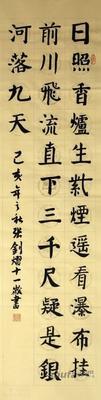 日照香爐生紫煙遥看瀑布挂
前川飛流直下三千尺疑是銀
河落九天
己亥年之秋張釗熠十一歲書